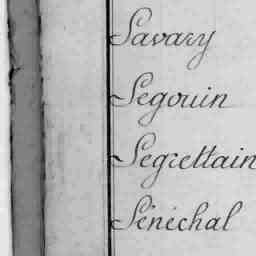 Savary
Segouin
Segrettain
Sénéchal